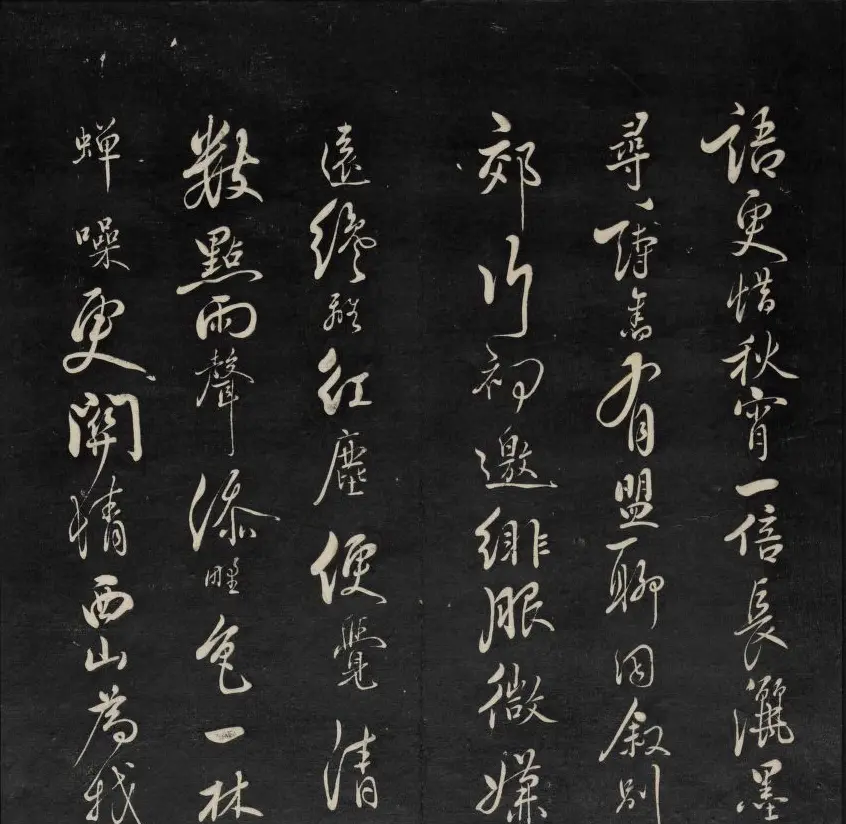 語更惜秋宵一倍長灑墨
尋詩舊有盟聊因叙別
郊行初邀緋服微嫌
遠纔離紅塵便覺清
數點雨聲添野色一林
蟬噪更關情西山為我